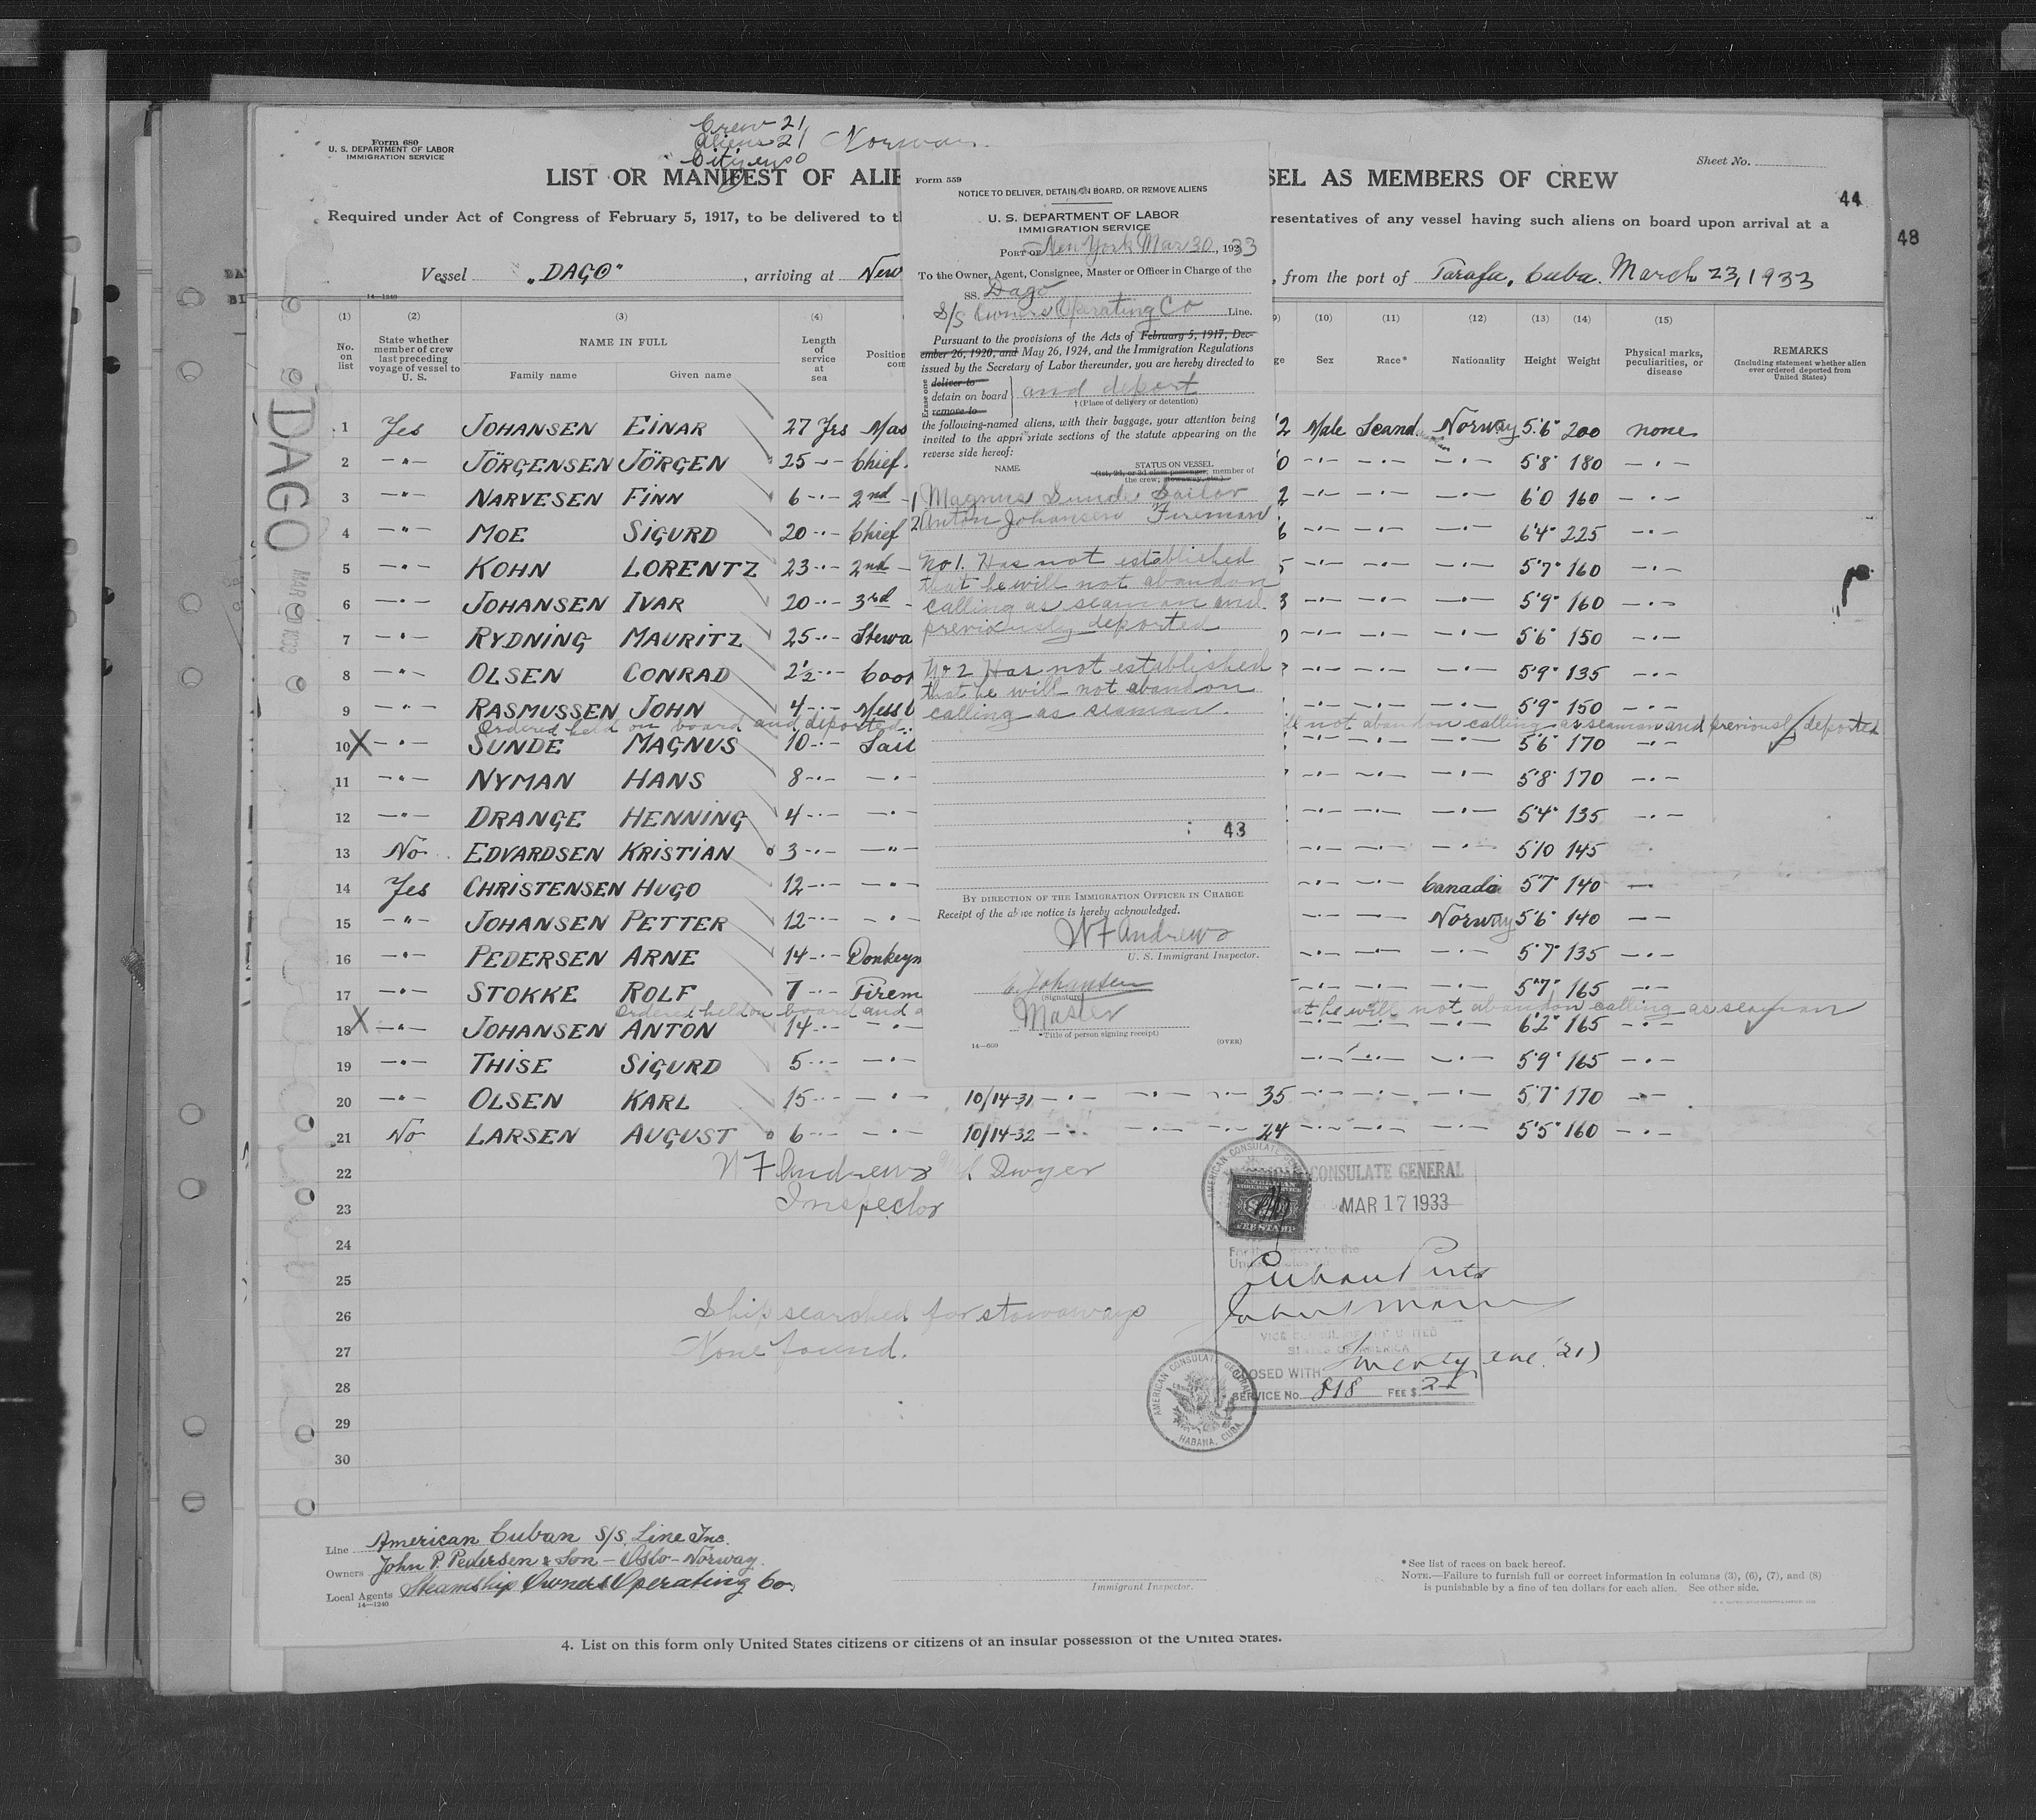 Crew 21
Aliens 21 Norway
Citizens 0
Form 680
U. S. DEPARTMENT OF LABOR
IMMIGRATION SERVICE
Sheet No.
LIST OR MANIFEST OF ALIE
SEL AS MEMBERS OF CREW
44
48
Required under Act of Congress of February 5, 1917, to be delivered to th
resentatives of any vessel having such aliens on board upon arrival at a
Vessel "DAGO", arriving at New
, from the port of Tarafa, Cuba. March 23, 1933
14—1240
(1) (2) (3) (4)
(10) (11) (12) (13) (14) (15)
No. on list
State whether member of crew last preceding voyage of vessel to U. S.
NAME IN FULL
Family name Given name
Length of service at sea
Position
com
ge
Sex Race* Nationality Height Weight
Physical marks, peculiarities, or disease
REMARKS
(Including statement whether alien ever ordered deported from United States)
DAGO
1 Yes JOHANSEN EINAR 27 Yrs Mas 2 Male Scand. Norway 5'6" 200 none
2 —"— JÖRGENSEN JÖRGEN 25 —"— Chief 0 —"— —"— —"— 5'8" 180 —"—
3 —"— NARVESEN FINN 6 —"— 2nd 2 —"— —"— —"— 6'0 160 —"—
4 —"— MOE SIGURD 20 —"— Chief 6 —"— —"— —"— 6'4" 225 —"—
5 —"— KOHN LORENTZ 23 —"— 2nd 5 —"— —"— —"— 5'7" 160 —"—
6 —"— JOHANSEN IVAR 20 —"— 3rd 3 —"— —"— —"— 5'9" 160 —"—
7 —"— RYDNING MAURITZ 25 —"— Stewa —"— —"— —"— 5'6" 150 —"—
8 —"— OLSEN CONRAD 2½ —"— Coo —"— —"— —"— 5'9" 135 —"—
9 —"— RASMUSSEN JOHN 4 —"— Mess —"— —"— —"— 5'9" 150 —"—
Ordered held on board and deported
ll not abandon calling as seaman and previously deported
10 X —"— SUNDE MAGNUS 10 —"— Sail —"— —"— —"— 5'6" 170 —"—
11 —"— NYMAN HANS 8 —"— —"— —"— —"— —"— 5'8" 170 —"—
12 —"— DRANGE HENNING 4 —"— —"— —"— —"— —"— 5'4" 135 —"—
13 No EDVARDSEN KRISTIAN 3 —"— —"— —"— —"— —"— 5'10 145
14 Yes CHRISTENSEN HUGO 12 —"— —"— —"— —"— Canada 5'7" 140 —
15 —"— JOHANSEN PETTER 12 —"— —"— —"— —"— Norway 5'6" 140 —"—
16 —"— PEDERSEN ARNE 14 —"— Donkeym —"— —"— —"— 5'7" 135 —"—
17 —"— STOKKE ROLF 7 —"— Firem —"— —"— —"— 5'7" 165 —"—
Ordered held on board and d
at he will not abandon calling as seaman
18 X —"— JOHANSEN ANTON 14 —"— —"— —"— —"— —"— 6'2" 165 —"—
19 —"— THISE SIGURD 5 —"— —"— —"— —"— —"— 5'9" 165 —"—
20 —"— OLSEN KARL 15 —"— —"— 10/14-31 —"— —"— —"— 35 —"— —"— —"— 5'7" 170 —"—
21 No LARSEN AUGUST 6 —"— —"— 10/14-32 —"— —"— —"— 24 —"— —"— —"— 5'5" 160 —"—
22
23
24
25
26
27
28
29
30
W F Andrews Dwyer
Inspector
Ship searched for stowaways
None found.
Form 559
NOTICE TO DELIVER, DETAIN ON BOARD, OR REMOVE ALIENS
U. S. DEPARTMENT OF LABOR
IMMIGRATION SERVICE
PORT OF New York Mar 30, 1933
To the Owner, Agent, Consignee, Master or Officer in Charge of the
SS. Dago
S/S Owners Operating Co Line.
Pursuant to the provisions of the Acts of February 5, 1917, Dec-
ember 26, 1920, and May 26, 1924, and the Immigration Regulations
issued by the Secretary of Labor thereunder, you are hereby directed to
Erase one
deliver to
detain on board and deport
remove to
† (Place of delivery or detention)
the following-named aliens, with their baggage, your attention being
invited to the appropriate sections of the statute appearing on the
reverse side hereof:
NAME.
STATUS ON VESSEL
(1st, 2d, or 3d class passenger; member of
the crew; stowaway, etc.)
1 Magnus Sunde Sailor
2 Anton Johansen Fireman
No 1. Has not established
that he will not abandon
calling as seaman and
previously deported
No 2 Has not established
that he will not abandon
calling as seaman.
43
BY DIRECTION OF THE IMMIGRATION OFFICER IN CHARGE
Receipt of the above notice is hereby acknowledged.
W F Andrews
U. S. Immigrant Inspector.
E. Johansen
(Signature)
Master
*Title of person signing receipt)
14—660
(OVER)
CONSULATE GENERAL
MAR 17 1933
FEE STAMP
Cuban Ports
VICE CONSUL OF THE UNITED
STATES OF AMERICA
OSED WITH Twenty one (21)
SERVICE No. 818 FEE $
AMERICAN CONSULATE GENERAL
HABANA, CUBA
Line American Cuban S/S. Line Inc.
Owners John P. Pedersen & Son - Oslo - Norway.
Local Agents Steamship Owners Operating Co.
14—1240
Immigrant Inspector.
* See list of races on back hereof.
NOTE.—Failure to furnish full or correct information in columns (3), (6), (7), and (8)
is punishable by a fine of ten dollars for each alien. See other side.
4. List on this form only United States citizens or citizens of an insular possession of the United States.